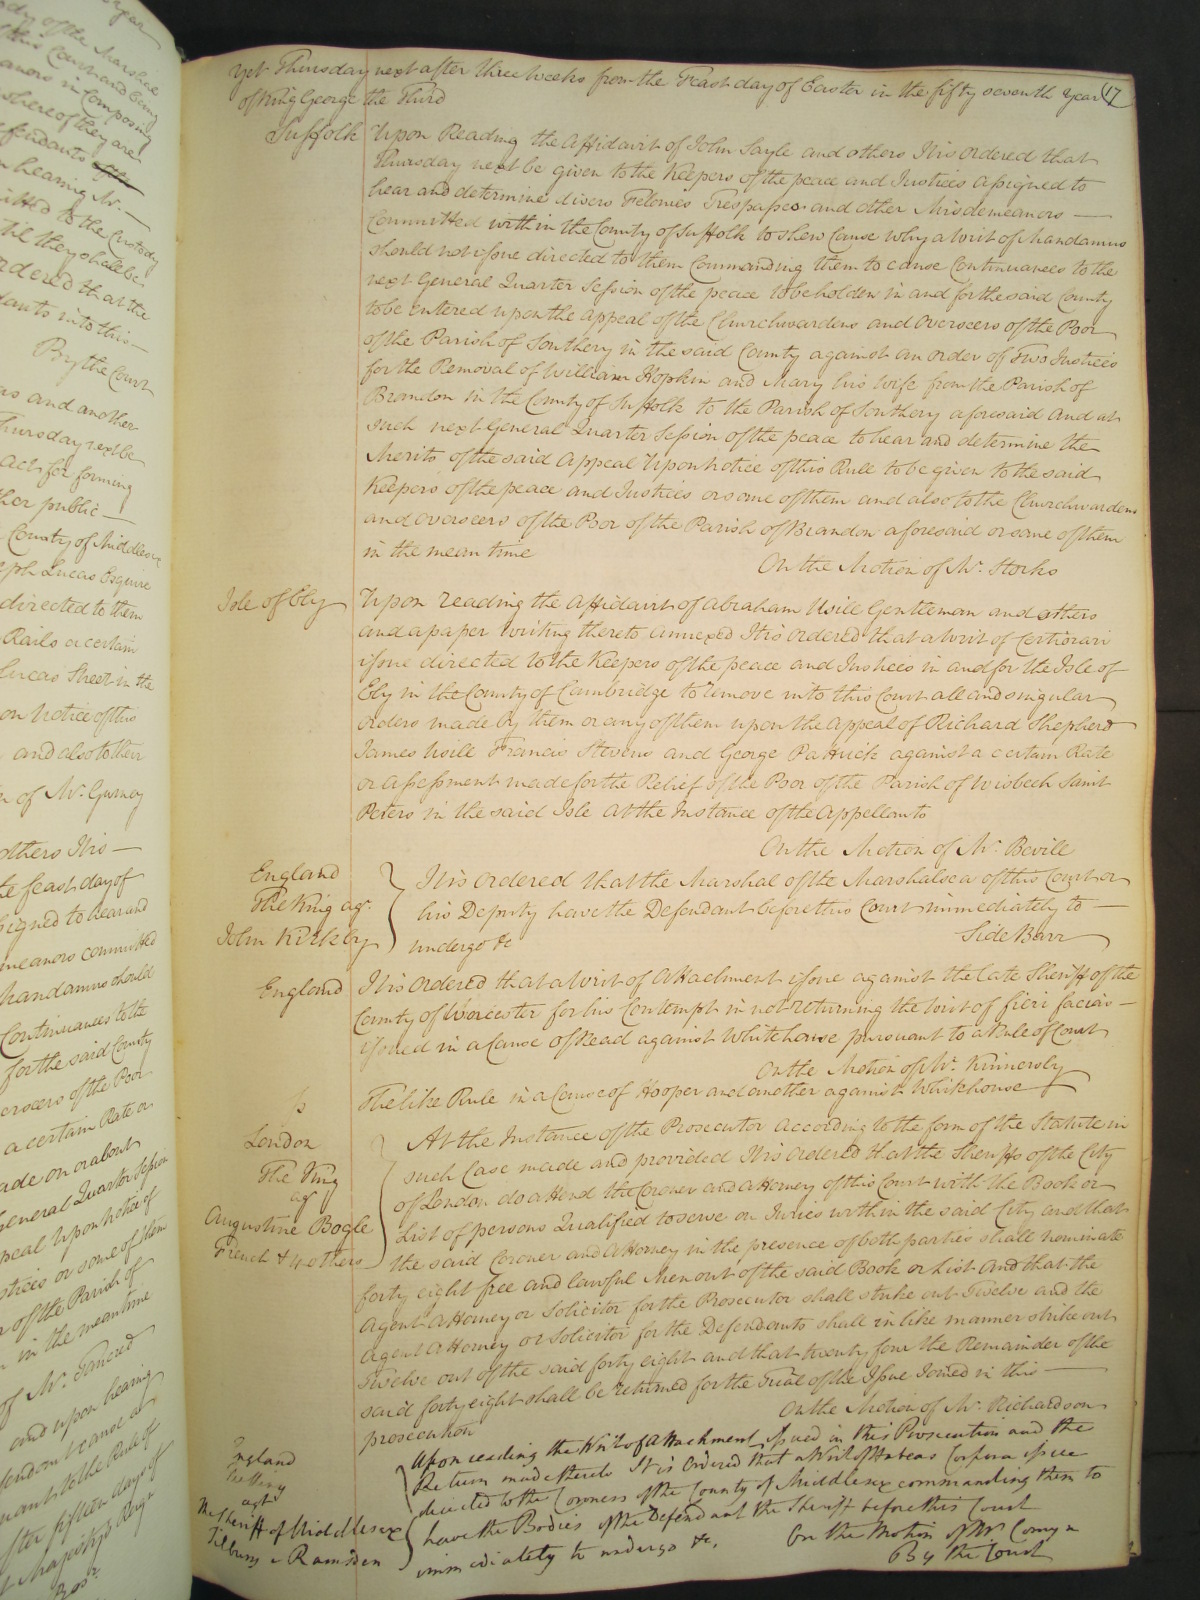 Yet Thursday next after three weeks from the Feast day of Easter in the fifty seventh Year 17
of King George the Third
Suffolk Upon Reading the Affidavit of John Sayle and others It is Ordered that
Thursday next be given to the Keepers of the peace and Justices assigned to
hear and determine divers Felonies Trespasses and other Misdemeanors —
Committed within the County of Suffolk to shew Cause why a Writ of Mandamus
should not issue directed to them Commanding them to cause Continuances to the
next General Quarter Session of the peace to be holden in and for the said County
to be entered upon the appeal of the Churchwardens and Overseers of the Poor
of the Parish of Southery in the said County against an order of Two Justices
for the Removal of William Hopkin and Mary his Wife from the Parish of
Brandon in the County of Suffolk to the Parish of Southery aforesaid and at
such next General Quarter Session of the peace to hear and determine the
Merits of the said Appeal Upon Notice of this Rule to be given to the said
Keepers of the peace and Justices or some of them and also to the Churchwardens
and Overseers of the Poor of the Parish of Brandon aforesaid or some of them
in the mean time
On the Motion of Mr. Storks
Isle of Ely Upon reading the Affidavit of Abraham Usill Gentleman and others
and a paper Writing thereto annexed It is Ordered that a Writ of Certiorari
issue directed to the Keepers of the peace and Justices in and for the Isle of
Ely in the County of Cambridge to remove into this Court all and singular
orders made by them or any of them upon the Appeal of Richard Shepherd
James Usill Francis Stevens and George Pattuck against a certain Rate
or assessment made for the Relief of the Poor of the Parish of Wisbech Saint
Peters in the said Isle at the Instance of the Appellants
On the Motion of Mr. Bevill
England
The King agt.
John Kirkby
It is Ordered that the Marshal of the Marshalsea of this Court or
his Deputy have the Defendant before this Court immediately to —
undergo &c
Side Barr
England It is Ordered that a Writ of Attachment issue against the late Sheriff of the
County of Worcester for his Contempt in not returning the Writ of fieri facias —
issued in a Cause of Read against Whitehouse pursuant to a Rule of Court
On the Motion of Mr. Kinnersly
The like Rule in a Cause of Hooper and another against Whitehouse
London
The King
agt
Augustine Bogle
French & others
At the Instance of the Prosecutor according to the form of the Statute in
such Case made and provided It is Ordered that the Sheriffs of the City
of London do attend the Coroner and attorney of this Court with the Book or
List of persons Qualified to serve on Juries within the said City and that
the said Coroner and Attorney in the presence of both parties shall nominate
forty eight free and lawful Men out of the said Book or List And that the
Agent Attorney or Solicitor for the Prosecutor shall strike out Twelve and the
Agent Attorney or Solicitor for the Defendants shall in like manner strike out
Twelve out of the said forty eight and that twenty four the Remainder of the
said forty eight shall be returned for the Trial of the Issue Joined in this —
prosecution
On the Motion of Mr. Richardson
England
The King
agt
The Sheriff of Middlesex
Tilbury v Ramsden
Upon reading the Writ of Attachment issued in this Prosecution and the
Return made thereto It is Ordered that a Writ of Habeas Corpora issue
directed to the Coroners of the County of Middlesex commanding them to
have the Bodies of the Defendant the Sheriff before this Court
immediately to undergo &c.
On the Motion of Mr Comyn
By the Court